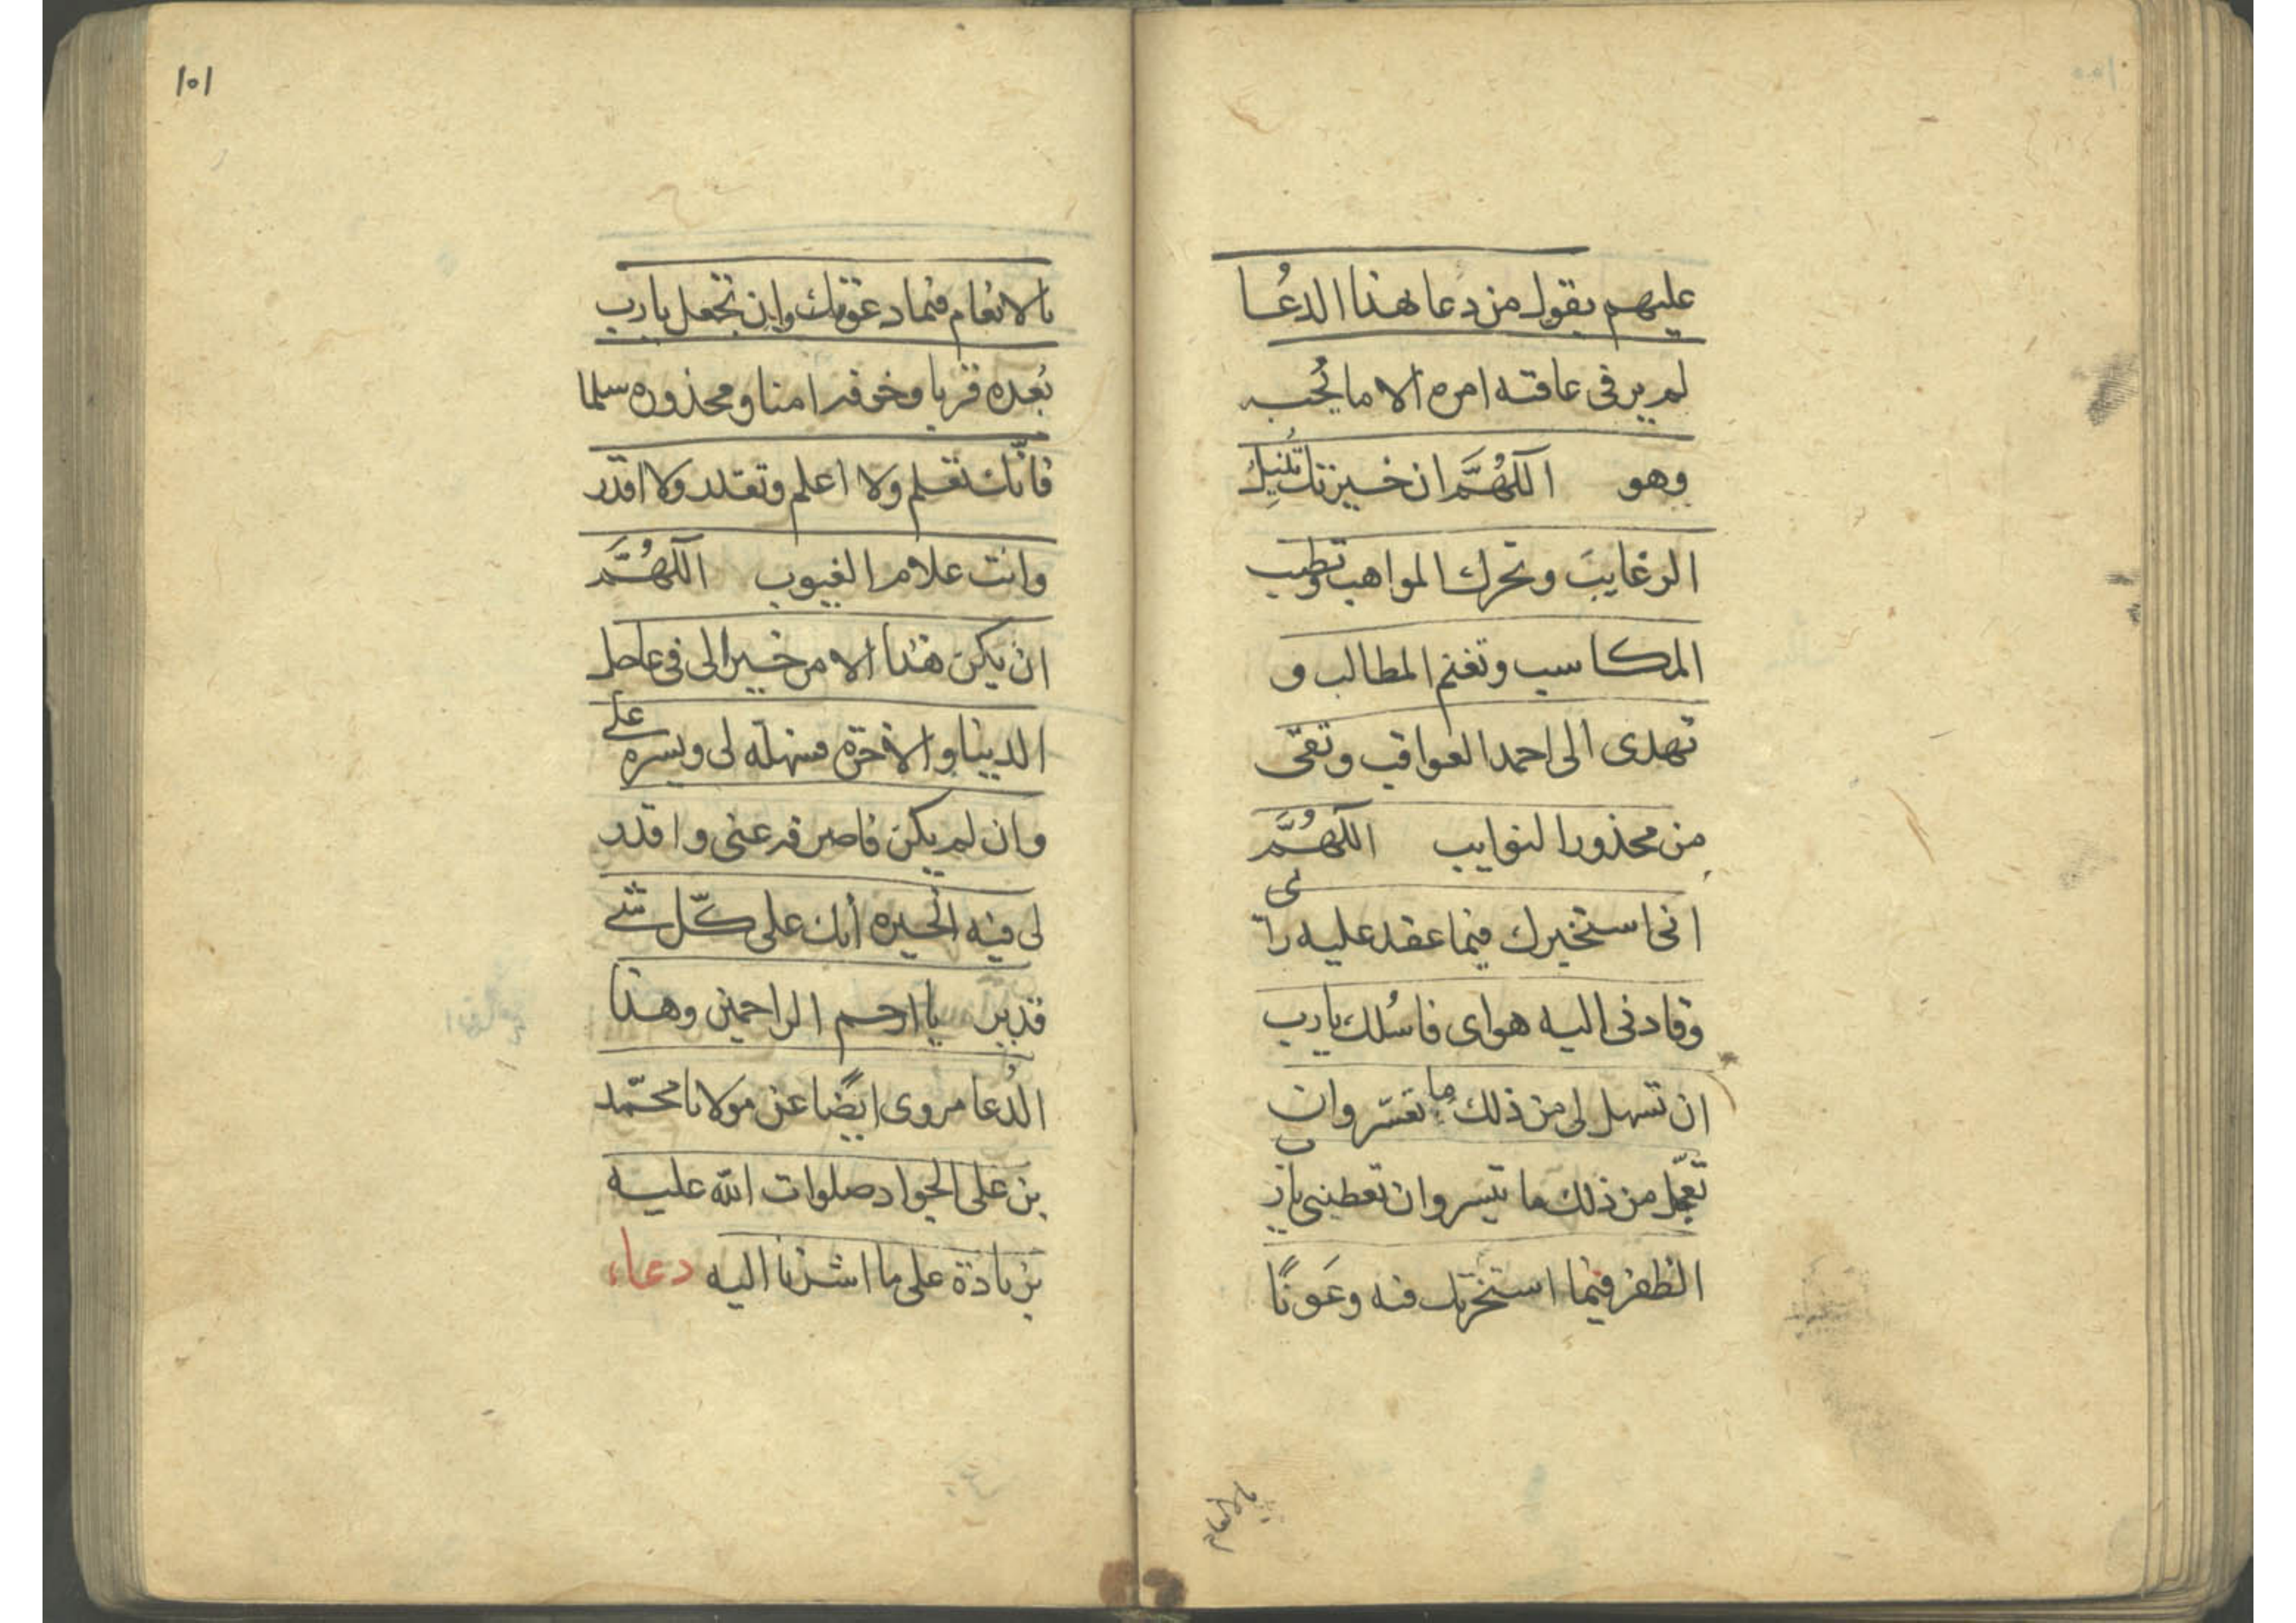 عليهم يقول من دعا بهذا الدعُا
لم ير فى عاقبة امره الا ما يُحب
وهو اللّهُمَّ ان خيرتك تُنيل
الرغايبَ وتحرك المواهب وتطيب
المكاسب وتغنم المطالب و
تهدى الى احمد العواقب وتقى
من محذور النوايب اللّهُمَّ
انى استخيرك فيما عقد عليه رائى
وقادنى اليه هواى فاسُلك يارب
ان تسهل لى من ذلك ما تعسّر وان
تعجّل من ذلك ما تيسر وان تعطينى يارب
الظفر فيما استخرتك فيه وعَونًا
بالانعام
١٠١
بالانعام فيما دعوتك وان تجعل يارب
بُعده قربا وخوفه امنا ومحذوره سلما
فانّك تعلم ولا اعلم وتقدر ولا اقدر
وانت علام الغيوب اللّهُمَّ
ان يكن هذا الامر خيرا لى فى عاجل
الدينا والاخرة فسهله لى ويسره على
وان لم يكن فاصرفه عنى واقدر
لى فيه الخيره انك على كلّ شئ
قدير يا ارحم الراحمين وهذا
الدُعا مروى ايضًا عن مولانا محمّد
بن على الجواد صلوات الله عليه
بزيادة على ما اشرنا اليه دعاء